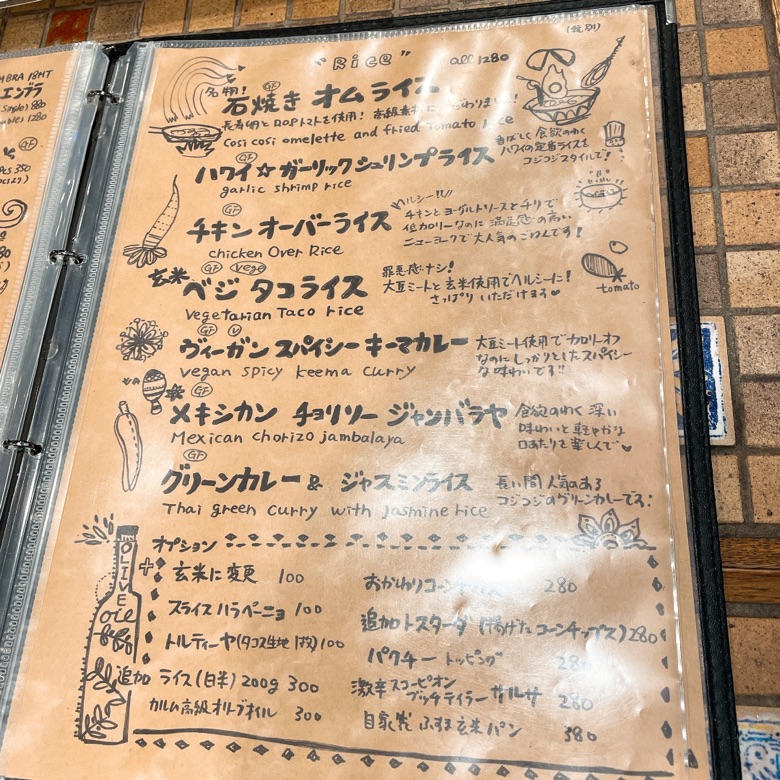 MBRA 18MT
エンブラ
880
1280
GF
PCS 350
"Rice"
all 1280
(税別)
名物!
GF
石焼き オムライス
長寿卵とDOPトマトを使用!
cosi cosi omelette and fried tomato rice
ハワイ☆ガーリックシュリンプライス
garlic shrimp rice
香ばしく食欲のわく
ハワイの定番ライスを
コジコジスタイルで!
GF
チキン オーバーライス
chicken Over Rice
ヘルシー!!
チキンとヨーグルトソースとチリで
低カロリーなのに満足感の高い
ニューヨークで大人気のごはんです!
GF vege
玄米 ベジ タコライス
Vegetarian Taco rice
罪悪感ナシ!
大豆ミートと玄米使用でヘルシーに!
さっぱりいただけます♥
tomato
GF V
ヴィーガン スパイシー キーマカレー
vegan spicy keema curry
大豆ミート使用でカロリーオフ
なのにしっかりとしたスパイシー
な味わいです!!
GF
メキシカン チョリソー ジャンバラヤ
Mexican chorizo jambalaya
食欲のわく深い
味わいと軽やかな
口あたりを楽しんで♥
GF
グリーンカレー & ジャスミンライス
Thai green curry with jasmine rice
長い間人気のある
コジコジのグリーンカレーです!
OLIVE
oil
オプション
+ 玄米に変更 100
スライスハラペーニョ 100
トルティーヤ(タコス生地1枚) 100
追加 ライス(白米)200g 300
カルム高級オリーブオイル 300
おかわりコーン 280
追加トスターダ(揚げたコーンチップス) 280
パクチートッピング 280
激辛スコーピオン
ブッチテイラーサルサ 280
自家製 ふすま玄米パン 380